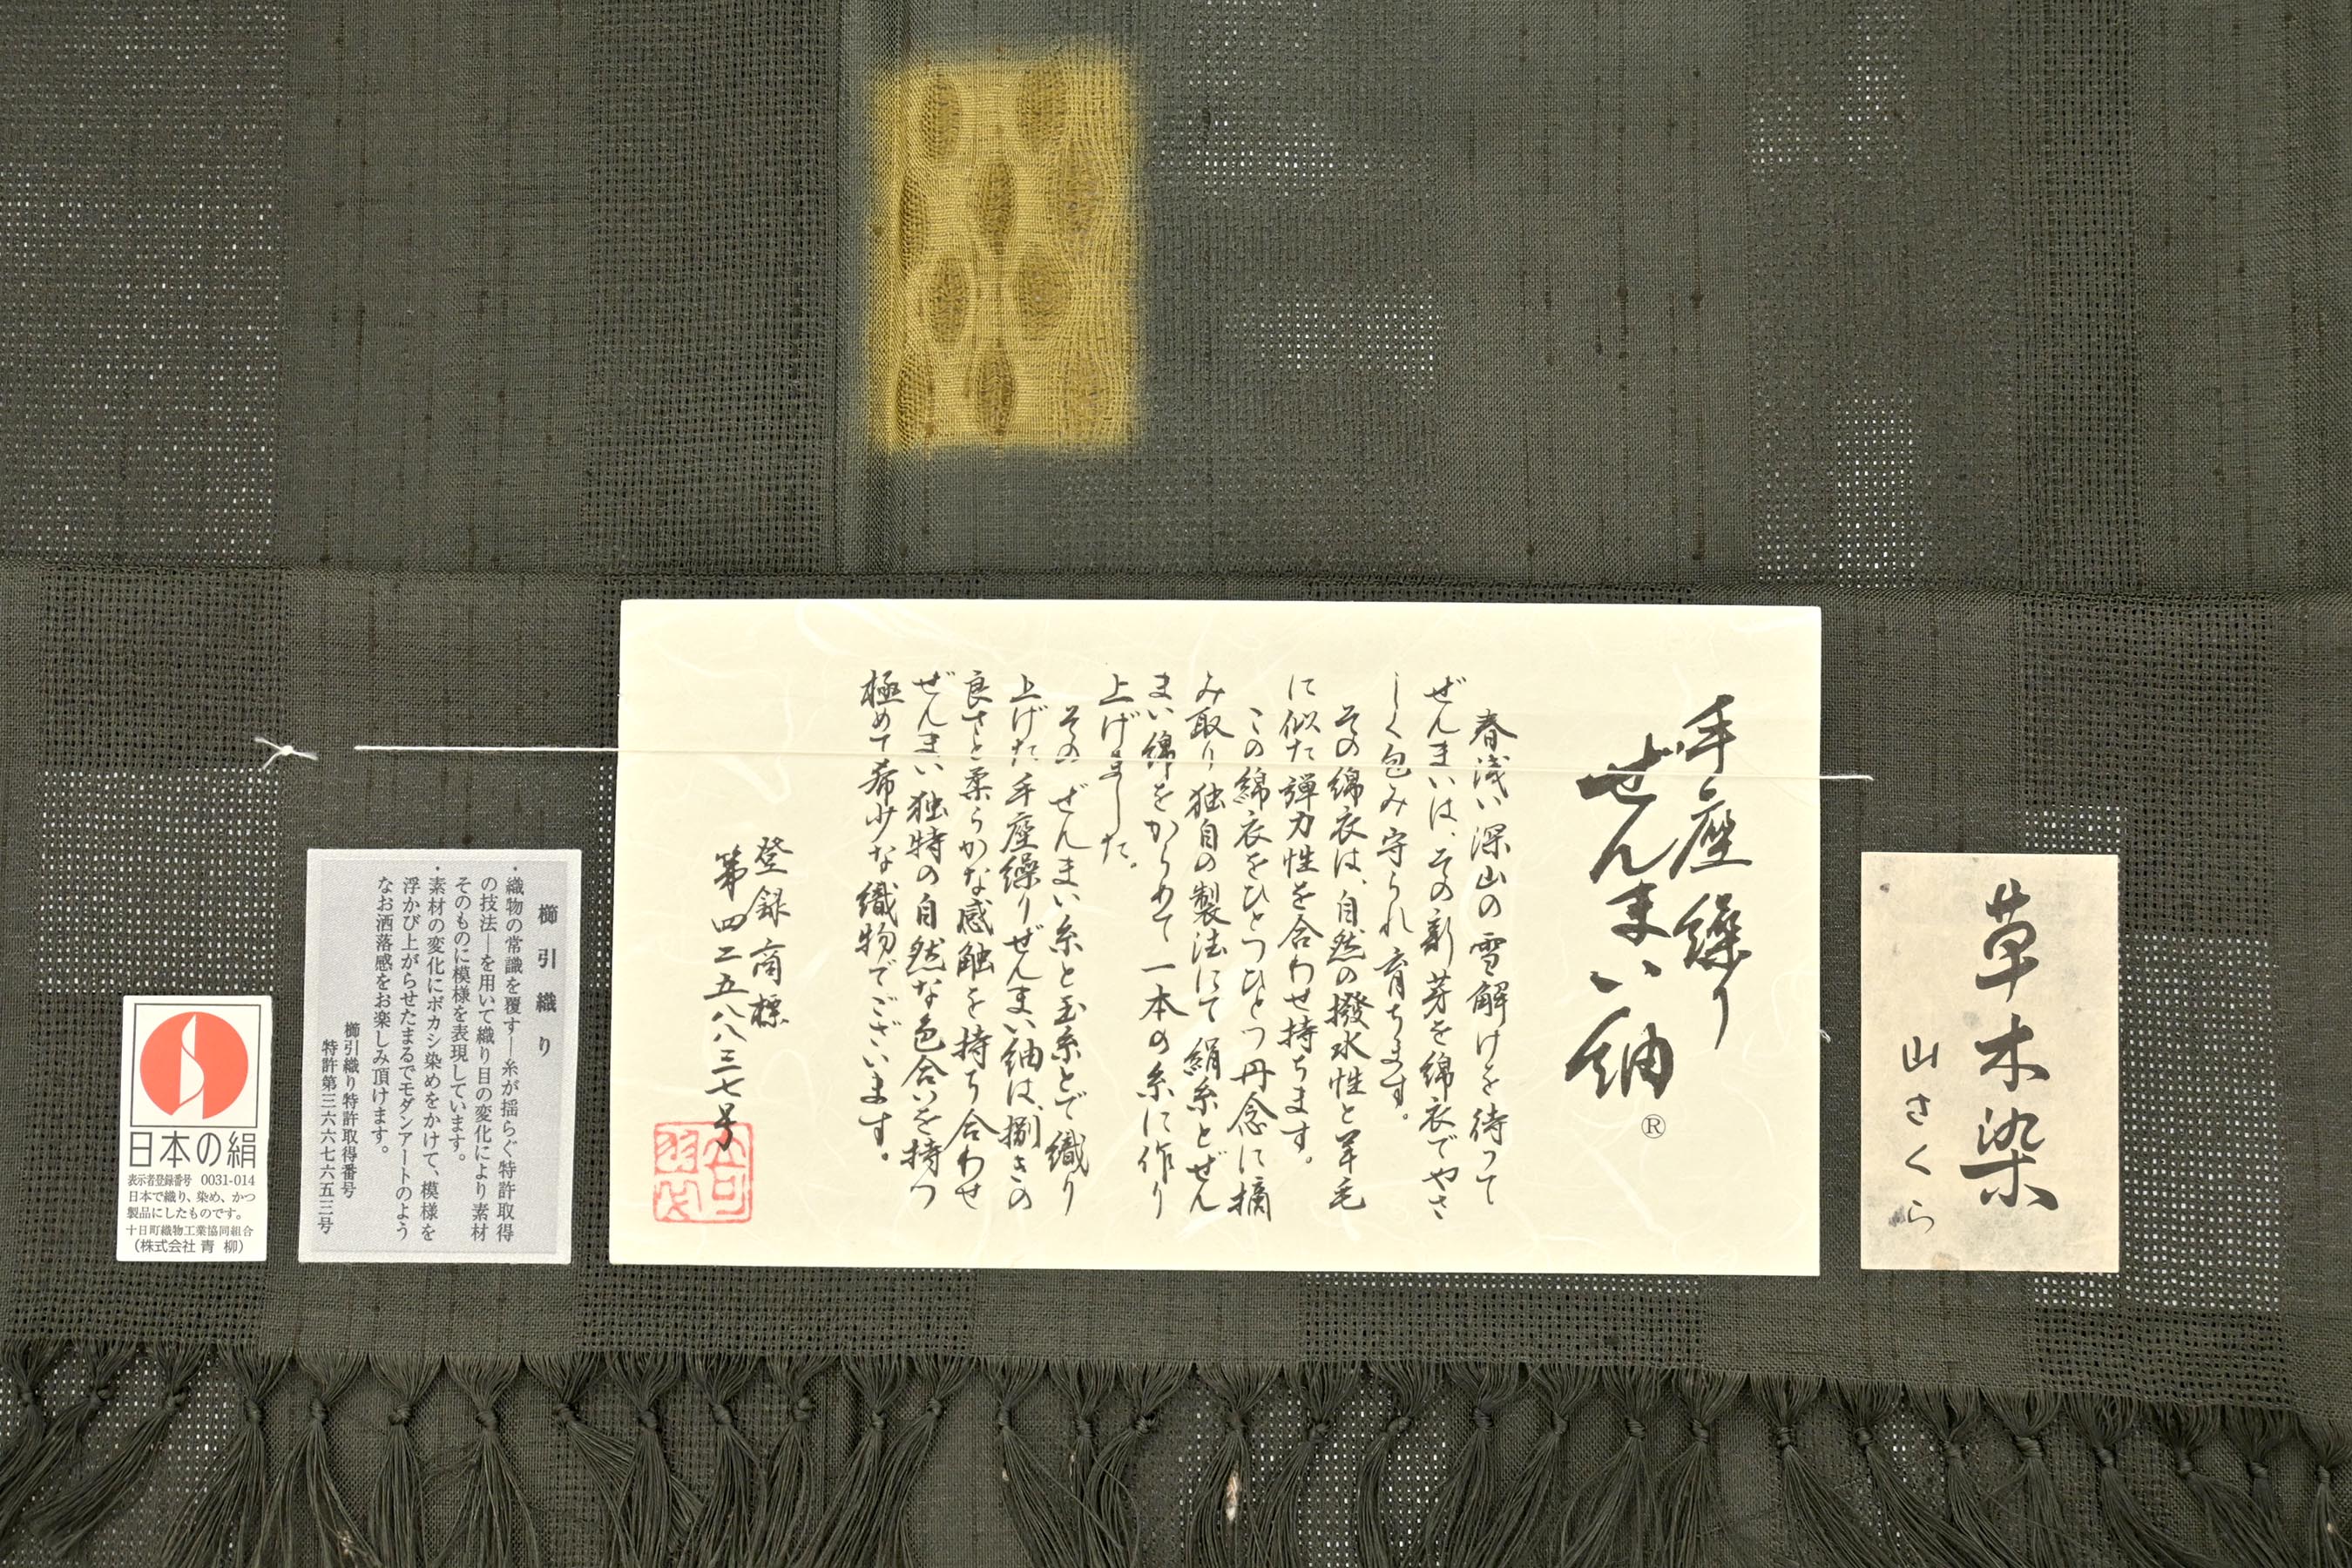 草木染
山さくら
手座繰り
ぜんまい紬
®
春浅い深山の雪解けを待って
ぜんまいは、その新芽を綿衣でやさ
しく包み守られ育ちます。
その綿衣は、自然の撥水性と羊毛
に似た弾力性を合わせ持ちます。
この綿衣をひとつひとつ丹念に摘
み取り独自の製法にて絹糸とぜん
まい綿をからめて一本の糸に作り
上げました。
そのぜんまい糸と玉糸とで織り
上げた手座繰りぜんまい紬は、捌きの
良さと柔らかな感触を持ち合わせ
ぜんまい独特の自然な色合いを持つ
極めて希少な織物でございます。
登録商標
第四二五八八三七号
櫛引織り
・織物の常識を覆す―糸が揺らぐ特許取得
の技法―を用いて織り目の変化により素材
そのものに模様を表現しています。
・素材の変化にボカシ染めをかけて、模様を
浮かび上がらせたまるでモダンアートのよう
なお洒落感をお楽しみ頂けます。
櫛引織り特許取得番号
特許第三六六七六五三号
日本の絹
表示者登録番号 0031-014
日本で織り、染め、かつ
製品にしたものです。
十日町織物工業協同組合
（株式会社 青 柳）